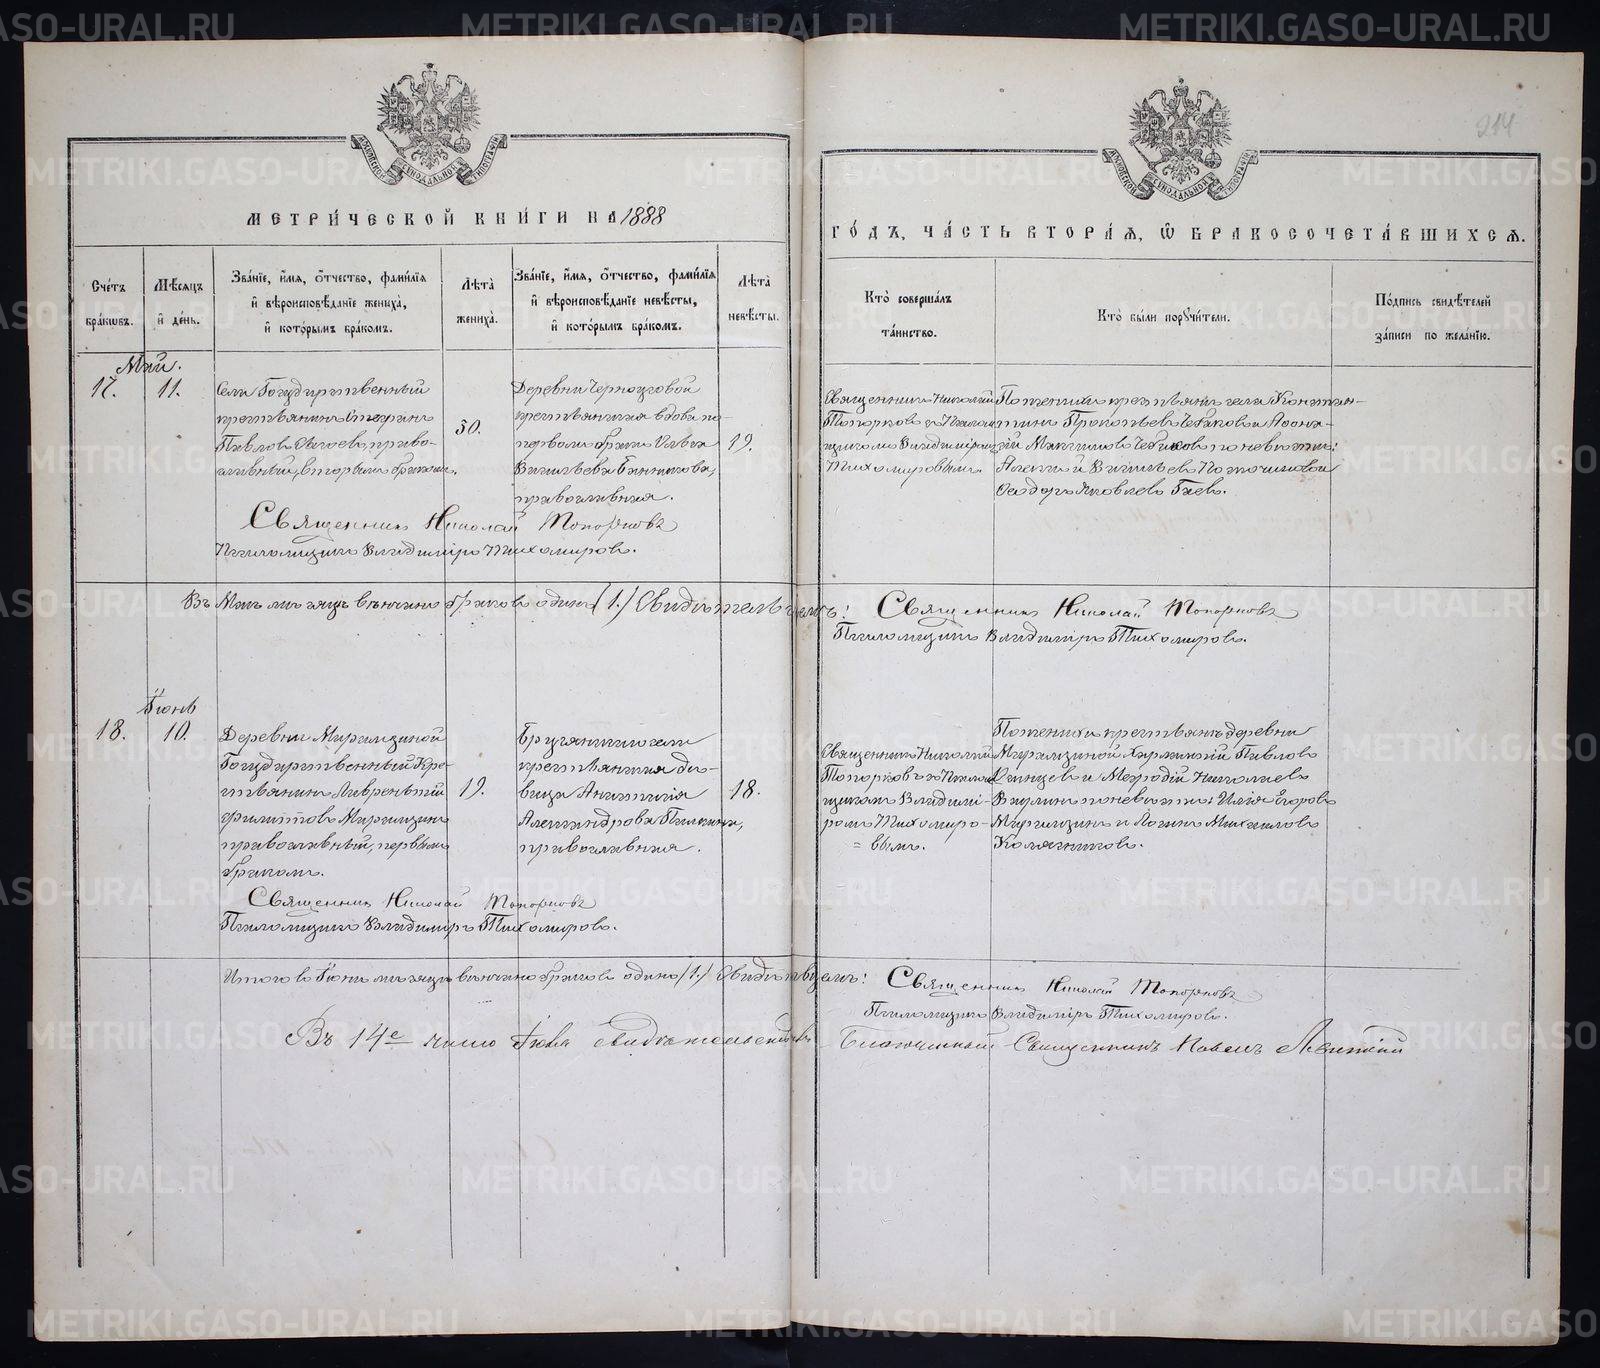 МЕТРИ́ЧЕСКОЙ КНИ́ГИ НА 1888
ГО́ДЪ, ЧА́СТЬ ВТОРА́Я, Ѡ БРАКОСОЧЕТА́ВШИХСЯ.
214
Сче́тъ бра́кѡвъ.
Мѣ́сяцъ и де́нь.
Зва́нїе, и́мя, о́тчество, фами́лїя
и вѣроисповѣ́данїе жениха̀,
и кото́рымъ бра́комъ.
Лѣта̀ жениха̀.
Зва́нїе, и́мя, о́тчество, фами́лїя
и вѣроисповѣ́данїе невѣ́сты,
и кото́рымъ бра́комъ.
Лѣта̀ невѣ́сты.
Кто̀ соверша́лъ
та́инство.
Кто̀ бы́ли порꙋчи́тели.
По́дпись свидѣ́телей
за́писи по жела́нїю.
Май.
17.
11.
Села Государственный
крестьянинъ Стефанъ
Павловъ православный, вторымъ бракомъ.
30.
Деревни
крестьянская вдова по
первомъ бракѣ
Васильева Банникова,
православная.
19.
Священникъ Николай
Топорковъ съ Псаломщикомъ Владиміромъ
Тихомировымъ.
По женихѣ крестьяне села
Прокопьевъ
по невѣстѣ:
Алексѣй Васильевъ
Ѳеодоръ Яковлевъ Гаевъ.
Священникъ Николай Топорковъ
Псаломщикъ Владиміръ Тихомировъ.
Въ Маѣ мѣсяцѣ вѣнчано браковъ одинъ (1.) Свидѣтельствуемъ: Священникъ Николай Топорковъ
Псаломщикъ Владиміръ Тихомировъ.
Іюнь
18.
10.
Деревни Маргаизиной
Государственный Кре-
стьянинъ Лаврентій
Филиповъ Маргаизинъ
православный, первымъ
бракомъ.
19.
села
крестьянская дѣ-
вица Анастасія
Александрова
православная.
18.
Священникъ Николай
Топорковъ съ Псалом-
щикомъ Владимі-
ромъ Тихомиро-
= вымъ.
По женихѣ крестьяне деревни
Маргаизиной Павловъ
и Меѳодій Николаевъ
по невѣстѣ: Илія Егоровъ
Маргаизинъ и Логинъ Михаиловъ
Священникъ Николай Топорковъ
Псаломщикъ Владиміръ Тихомировъ.
Итого въ Іюнѣ мѣсяцѣ вѣнчано браковъ одинъ (1.) Свидѣтельствуемъ: Священникъ Николай Топорковъ
Псаломщикъ Владиміръ Тихомировъ.
Въ 14е число Іюня свидѣтельствовалъ Благочинный Священникъ Павелъ Левитскій
METRIKI.GASO-URAL.RU